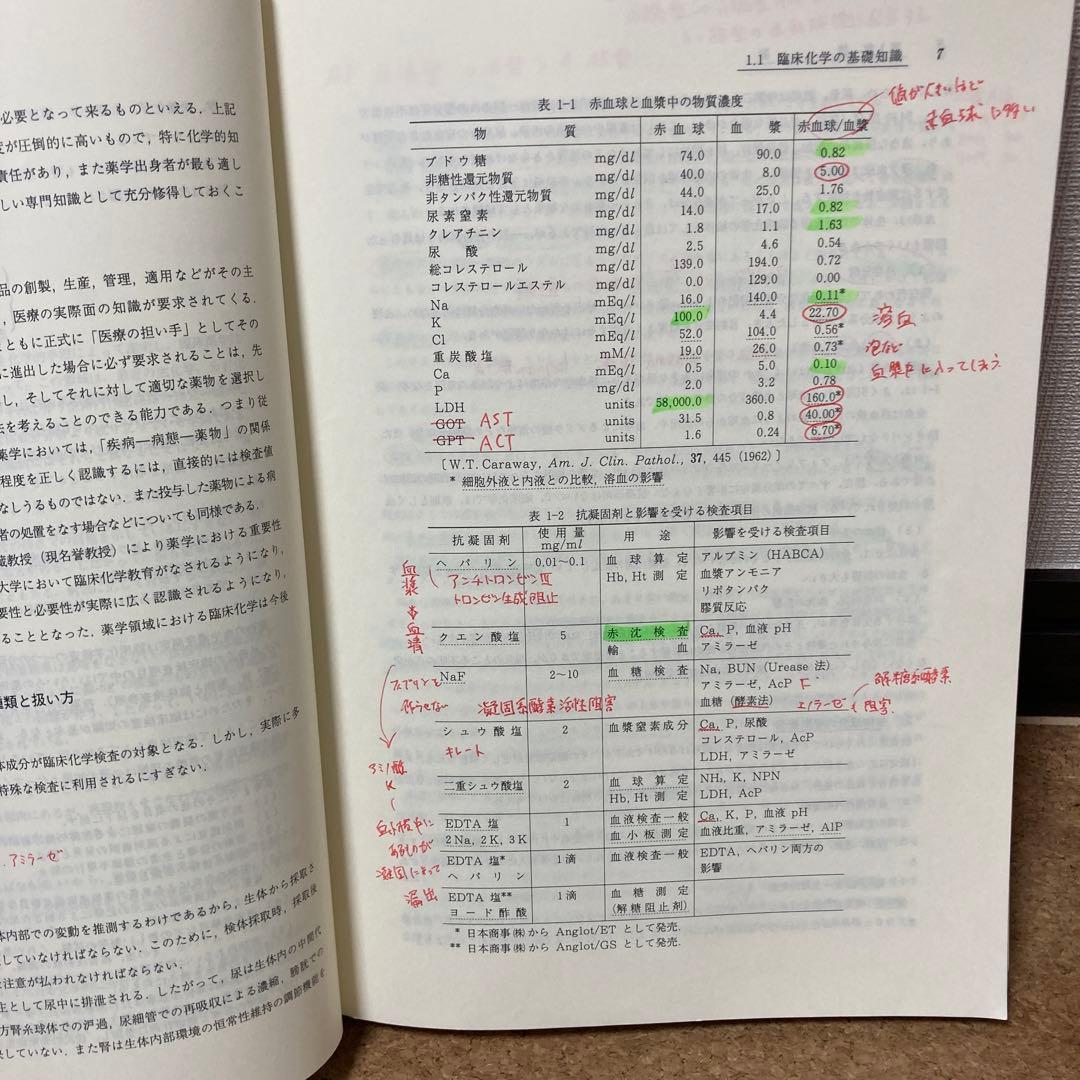 必要となって来るものといえる．上記
度が圧倒的に高いもので，特に化学的知
責任があり，また薬学出身者が最も適し
しい専門知識として充分修得しておくこ
品の創製，生産，管理，適用などがその主
，医療の実際面の知識が要求されてくる．
ともに正式に「医療の担い手」としてその
に進出した場合に必ず要求されることは，先
し，そしてそれに対して適切な薬物を選択し
法を考えることのできる能力である．つまり従
薬学においては，「疾病―病態―薬物」の関係
程度を正しく認識するには，直接的には検査値
なしうるものではない．また投与した薬物による病
者の処置をなす場合などについても同様である．
蔵教授（現名誉教授）により薬学における重要性
大学において臨床化学教育がなされるようになり，
要性と必要性が実際に広く認識されるようになり，
ることとなった．薬学領域における臨床化学は今後
種類と扱い方
体成分が臨床化学検査の対象となる．しかし，実際に多
特殊な検査に利用されるにすぎない．
アミラーゼ
体内部での変動を推測するわけであるから，生体から採取さ
していなければならない．このために，検体採取時，採取後
注意が払われなければならない．
主として尿中に排泄される．したがって，尿は生体内の中間代
方腎糸球体での沪過，尿細管での再吸収による濃縮，膀胱での
していない．また腎は生体内部環境の恒常性維持の調節機能を
1.1 臨床化学の基礎知識 7
表 1-1 赤血球と血漿中の物質濃度
値が大きいほど
赤血球に多い
物 質 赤血球 血漿 赤血球/血漿
ブドウ糖 mg/dl 74.0 90.0 0.82
非糖性還元物質 mg/dl 40.0 8.0 5.00
非タンパク性還元物質 mg/dl 44.0 25.0 1.76
尿素窒素 mg/dl 14.0 17.0 0.82
クレアチニン mg/dl 1.8 1.1 1.63
尿酸 mg/dl 2.5 4.6 0.54
総コレステロール mg/dl 139.0 194.0 0.72
コレステロールエステル mg/dl 0.0 129.0 0.00
Na mEq/l 16.0 140.0 0.11*
K mEq/l 100.0 4.4 22.70 溶血
Cl mEq/l 52.0 104.0 0.56*
重炭酸塩 mM/l 19.0 26.0 0.73* 泡など
Ca mEq/l 0.5 5.0 0.10 血漿中に入ってしまう
P mg/dl 2.0 3.2 0.78
LDH units 58,000.0 360.0 160.0*
GOT AST units 31.5 0.8 40.00*
GPT ACT units 1.6 0.24 6.70*
〔W.T. Caraway, Am. J. Clin. Pathol., 37, 445 (1962)〕
* 細胞外液と内液との比較，溶血の影響
表 1-2 抗凝固剤と影響を受ける検査項目
抗凝固剤 使用量 mg/ml 用途 影響を受ける検査項目
ヘパリン 0.01～0.1 血球算定 アルブミン（HABCA）
Hb, Ht 測定 血漿アンモニア
リポタンパク
膠質反応
血漿
アンチトロンビンⅢ
トロンビン生成阻止
血清
クエン酸塩 5 赤沈検査 Ca, P, 血液 pH
輸血 アミラーゼ
NaF 2～10 血糖検査 Na, BUN（Urease 法）
アミラーゼ，AcP F
血糖（酵素法）
解糖系酵素
エノラーゼ 阻害．
凝固系酵素活性阻害
シュウ酸塩 2 血漿窒素成分 Ca, P, 尿酸
コレステロール，AcP
LDH, アミラーゼ
キレート
二重シュウ酸塩 2 血球算定 NH₃, K, NPN
Hb, Ht 測定 LDH, AcP
アミノ酸
K
EDTA 塩 1 血液検査一般 Ca, K, P, 血液 pH
2Na, 2K, 3K 血小板測定 血液比重，アミラーゼ，AlP
EDTA 塩* 1滴 血液検査一般 EDTA, ヘパリン両方の
ヘパリン 影響
血小板中に
あるものが
凝固によって
漏出
EDTA 塩** 1滴 血糖測定
ヨード酢酸 （解糖阻止剤）
* 日本商事㈱から Anglot/ET として発売．
** 日本商事㈱から Anglot/GS として発売．